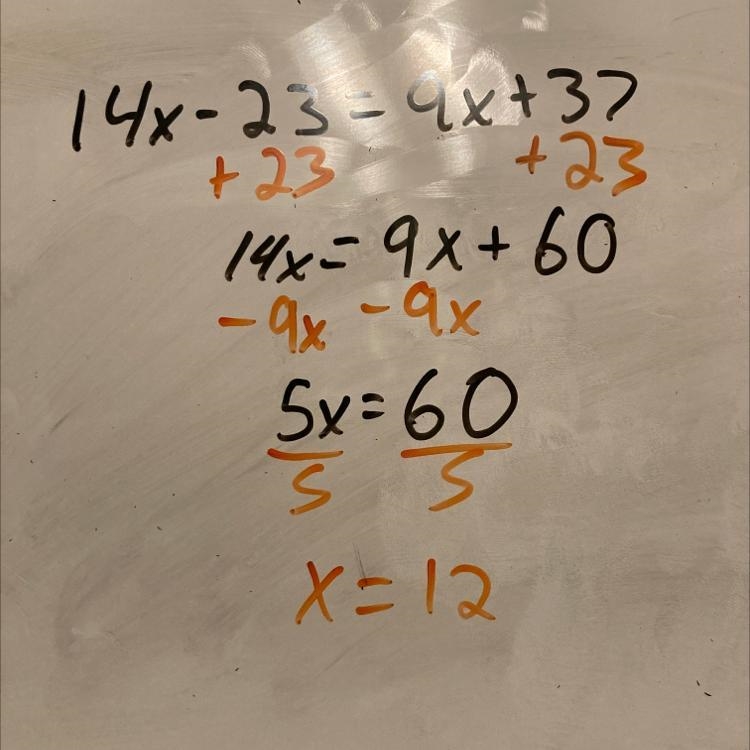 14x - 23 = 9x + 37
+ 23 + 23
14x = 9x + 60
- 9x - 9x
5x = 60
5 5
x = 12